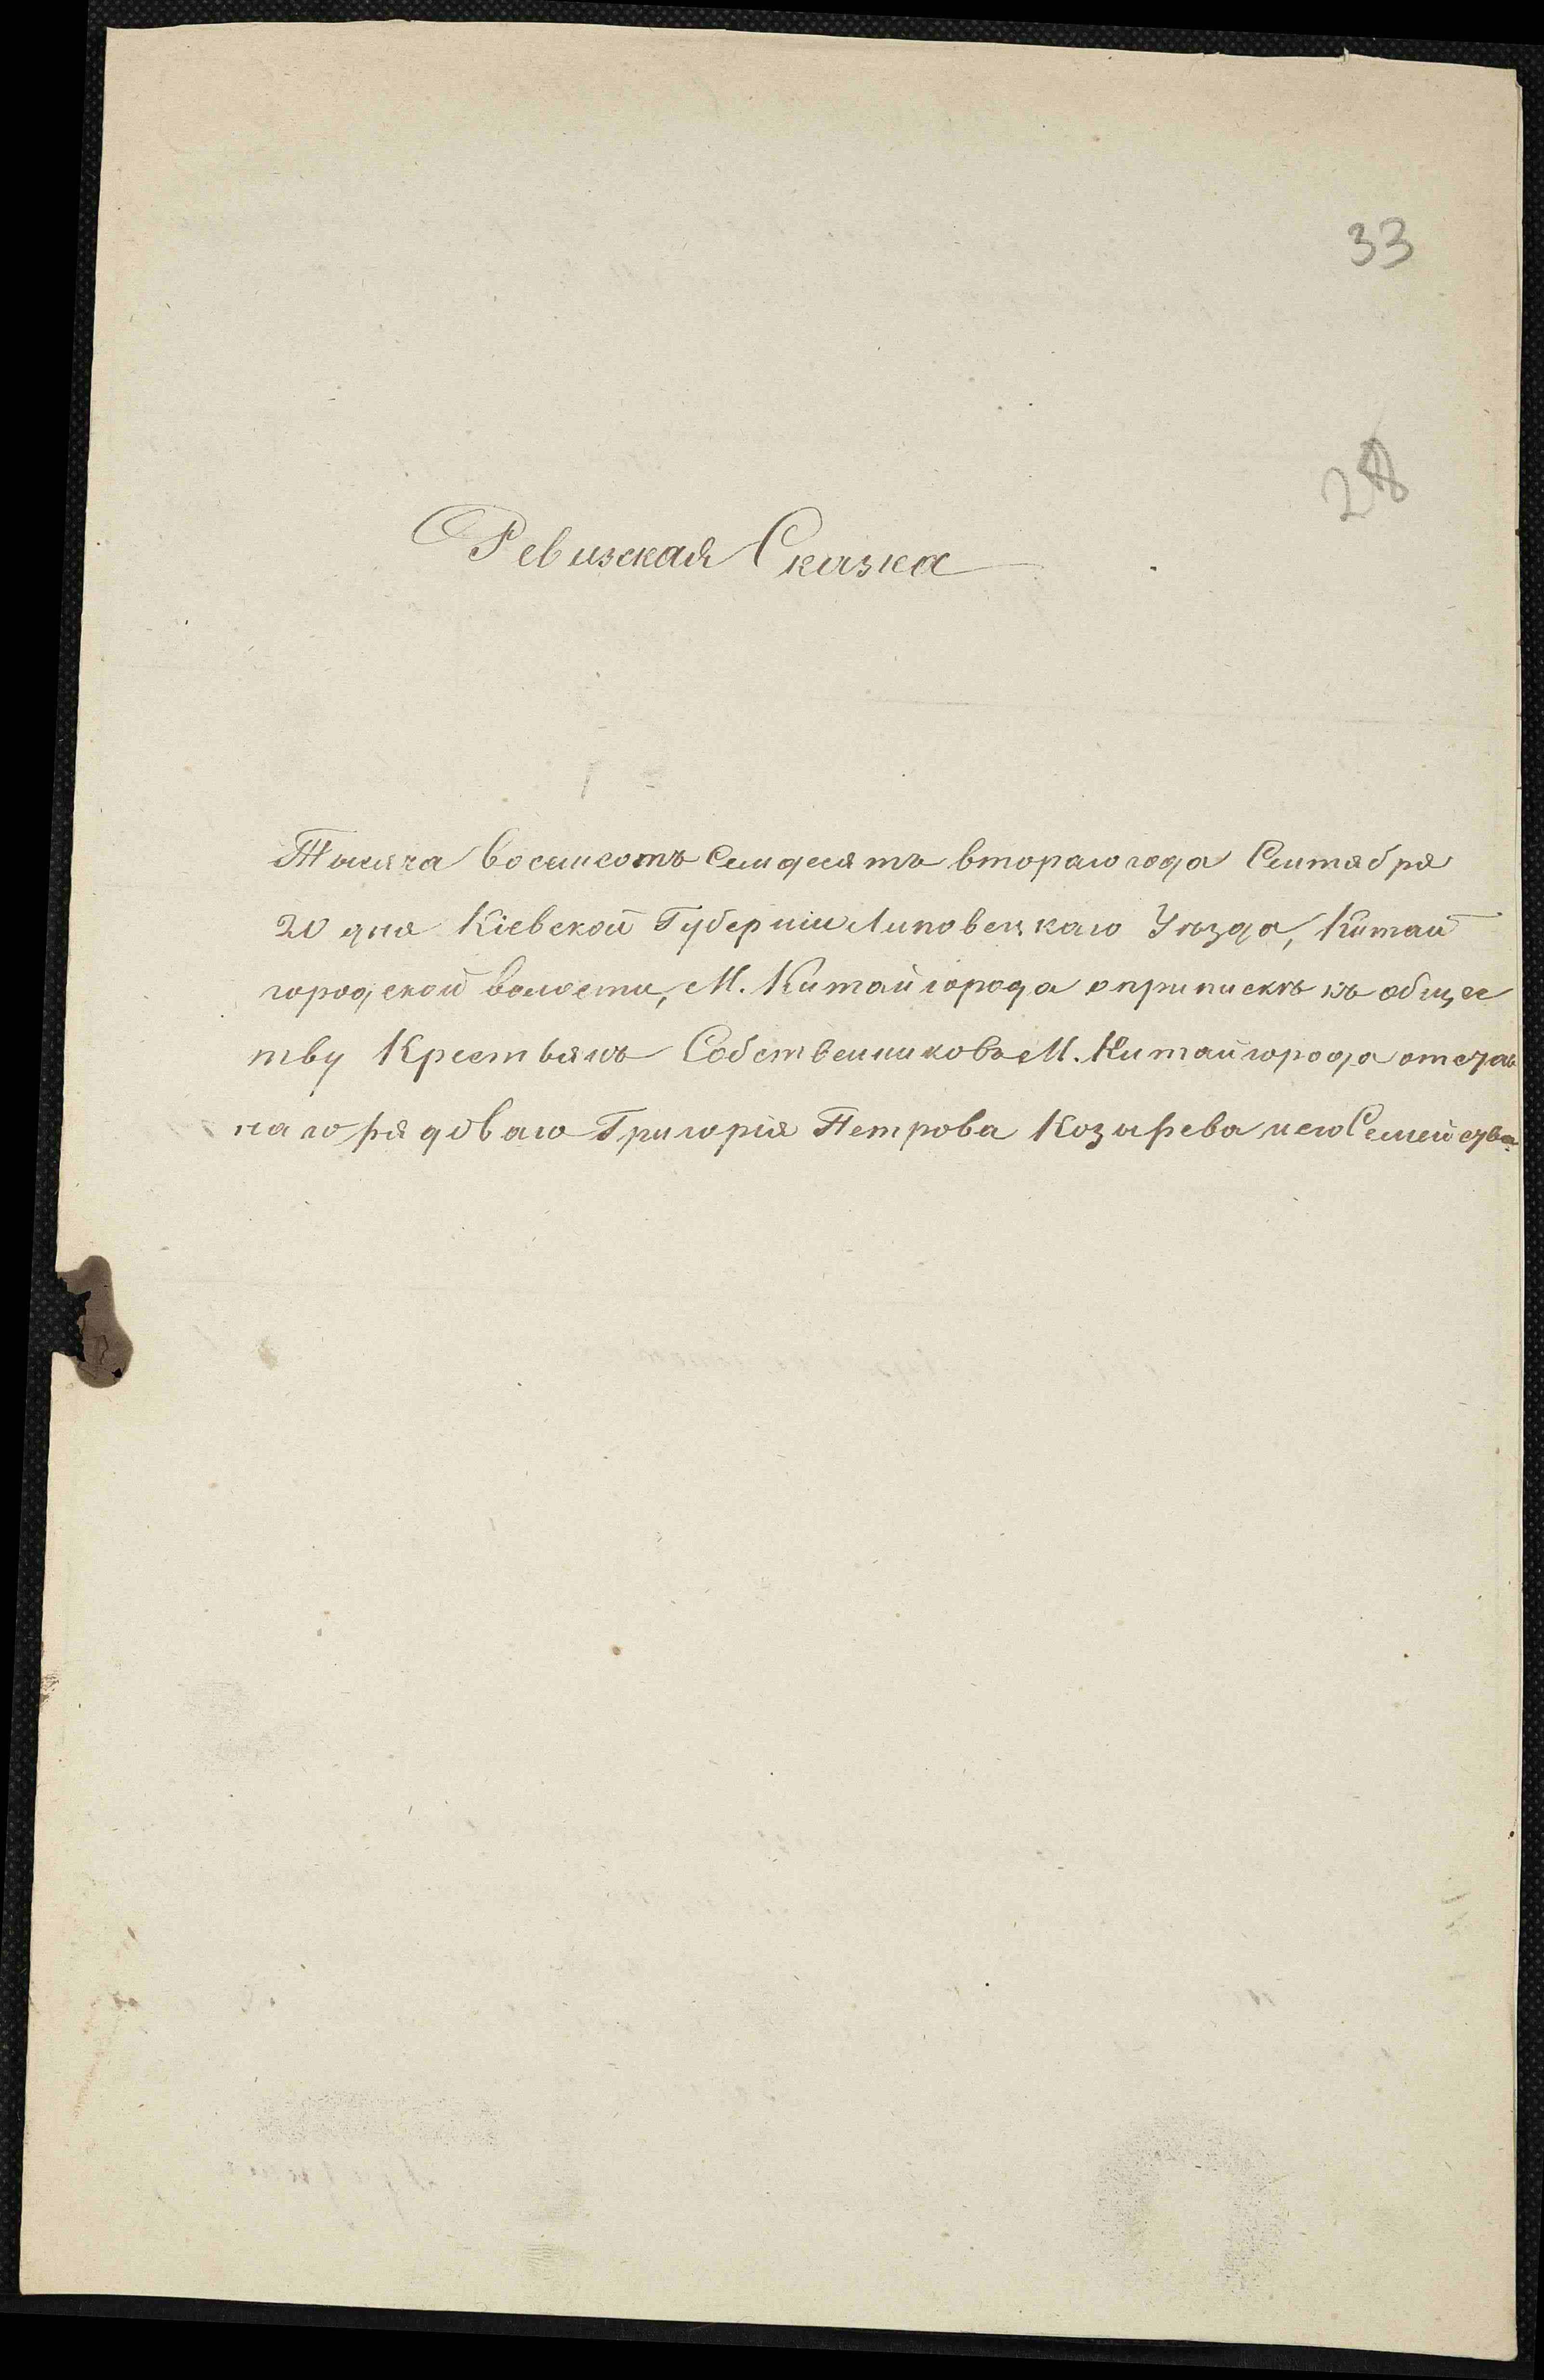 33
28
Ревизская Сказка
Тысяча восемсотъ Семдесятъ втораго года Сентября
20 дня Кіевской Губерніи Липовецкаго Уѣзда, Китай
городской волости, М. Китайгорода о припискѣ къ общес
тву Крестьянъ Собственниковъ М. Китайгорода отстав
наго рядоваго Григорія Петрова Козырева и его Семейства.